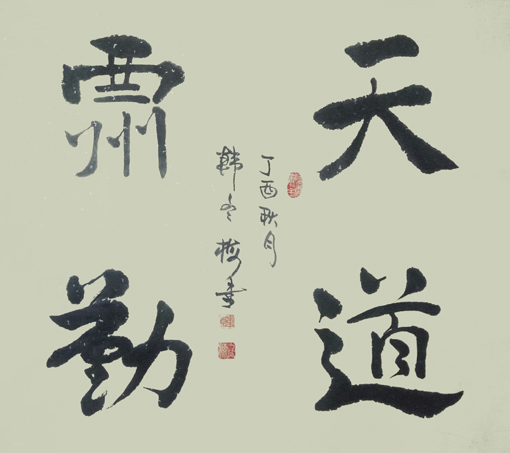 天道
酬勤
丁酉秋月
韓冬梅書